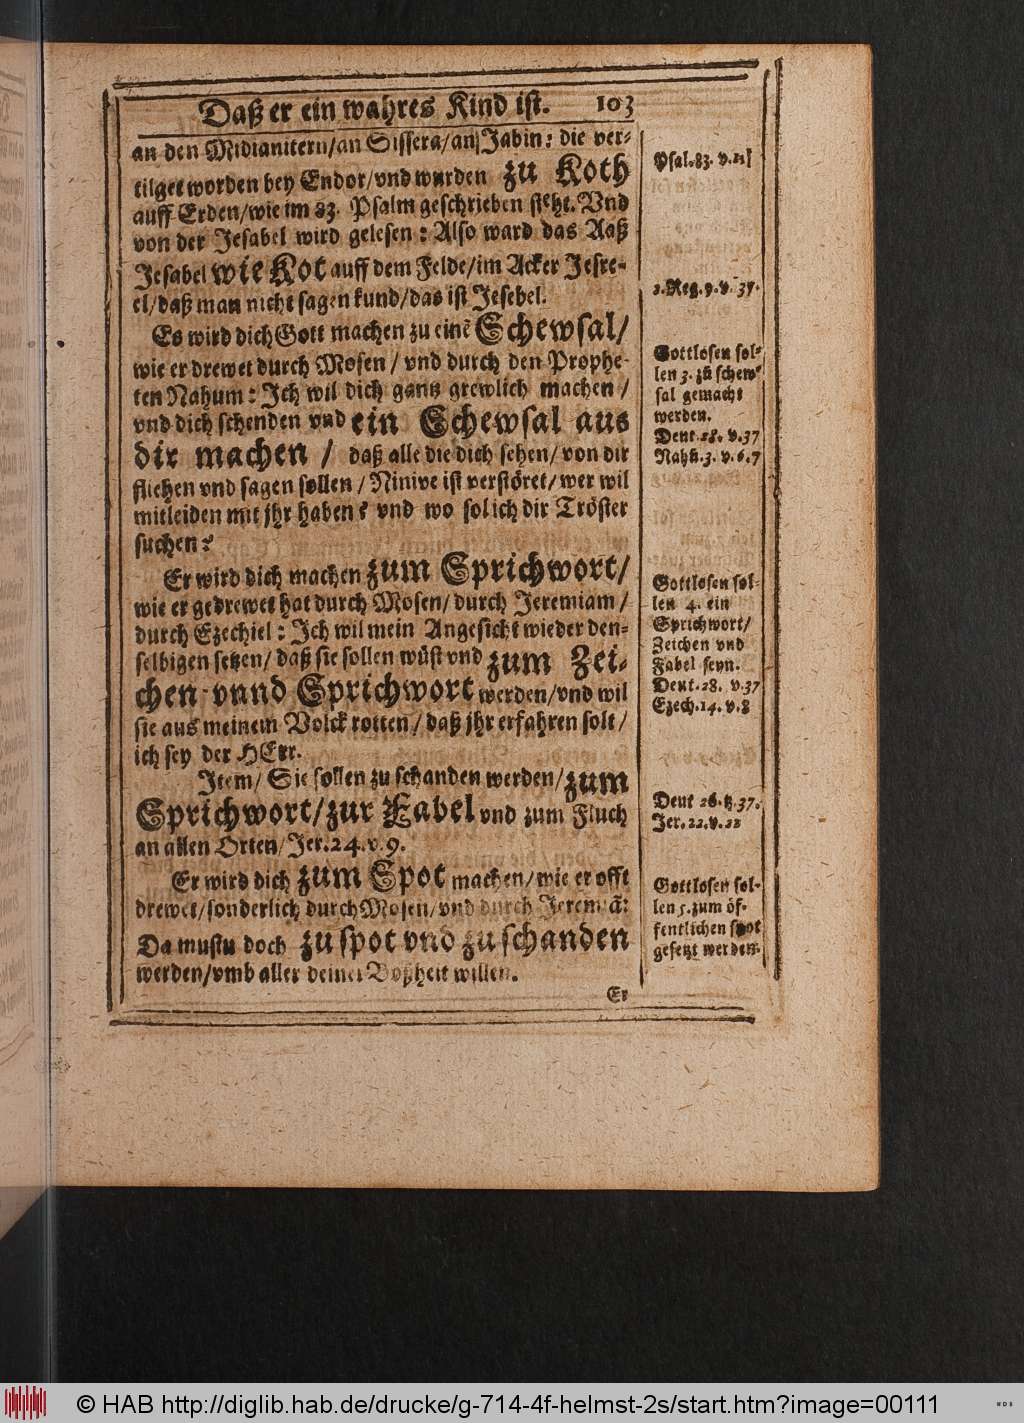 Daß er ein wahres Kind ist. 103
an den Midianitern/an Sissera/an Jabin: die ver-
tilget worden bey Endor/vnd wurden zu Koth
auff Erden/wie im 83. Psalm geschrieben steht. Vnd
von der Jesabel wird gelesen: Also ward das Aaß
Jesabel wie Kot auff dem Felde/im Acker Jesre-
el/daß man nicht sagen kund/das ist Jesebel.
Es wird dich Gott machen zu einē Schewsal/
wie er drewet durch Mosen/ vnd durch den Prophe-
ten Nahum: Ich wil dich gantz grewlich machen/
vnd dich schenden vnd ein Schewsal aus
dir machen/ daß alle die dich sehen/von dir
fliehen vnd sagen sollen/Ninive ist verstöret/wer wil
mitleiden mit jhr haben? vnd wo sol ich dir Tröster
suchen?
Er wird dich machen zum Sprichwort/
wie er gedrewet hat durch Mosen/durch Jeremiam/
durch Ezechiel: Ich wil mein Angesicht wieder den-
selbigen setzen/daß sie sollen wüst vnd zum Zei-
chen vnnd Sprichwort werden/vnd wil
sie aus meinem Volck rotten/daß jhr erfahren solt/
ich sey der HErr.
Item/ Sie sollen zu schanden werden/zum
Sprichwort/zur Fabel vnd zum Fluch
an allen Orten/Jer.24.v.9.
Er wird dich zum Spot machen/wie er offt
drewet/sonderlich durch Mosen/vnd durch Jeremiā:
Da mustu doch zu spot vnd zu schanden
werden/vmb aller deiner Boßheit willen.
Er
Psal.83. v.11
2.Reg.9.v.37.
Gottlosen sol-
len 3. zū schew-
sal gemacht
werden.
Deut.28. v.37
Nahū.3. v.6.7
Gottlosen sol-
len 4. ein
Sprichwort/
Zeichen vnd
Fabel seyn.
Deut.28. v.37
Ezech.14. v.8
Deut 37.
Jer.22.v.22
Gottlosen sol-
len 5.zum öf-
fentlichen spot
gesetzt werden.
© HAB http://diglib.hab.de/drucke/g-714-4f-helmst-2s/start.htm?image=00111